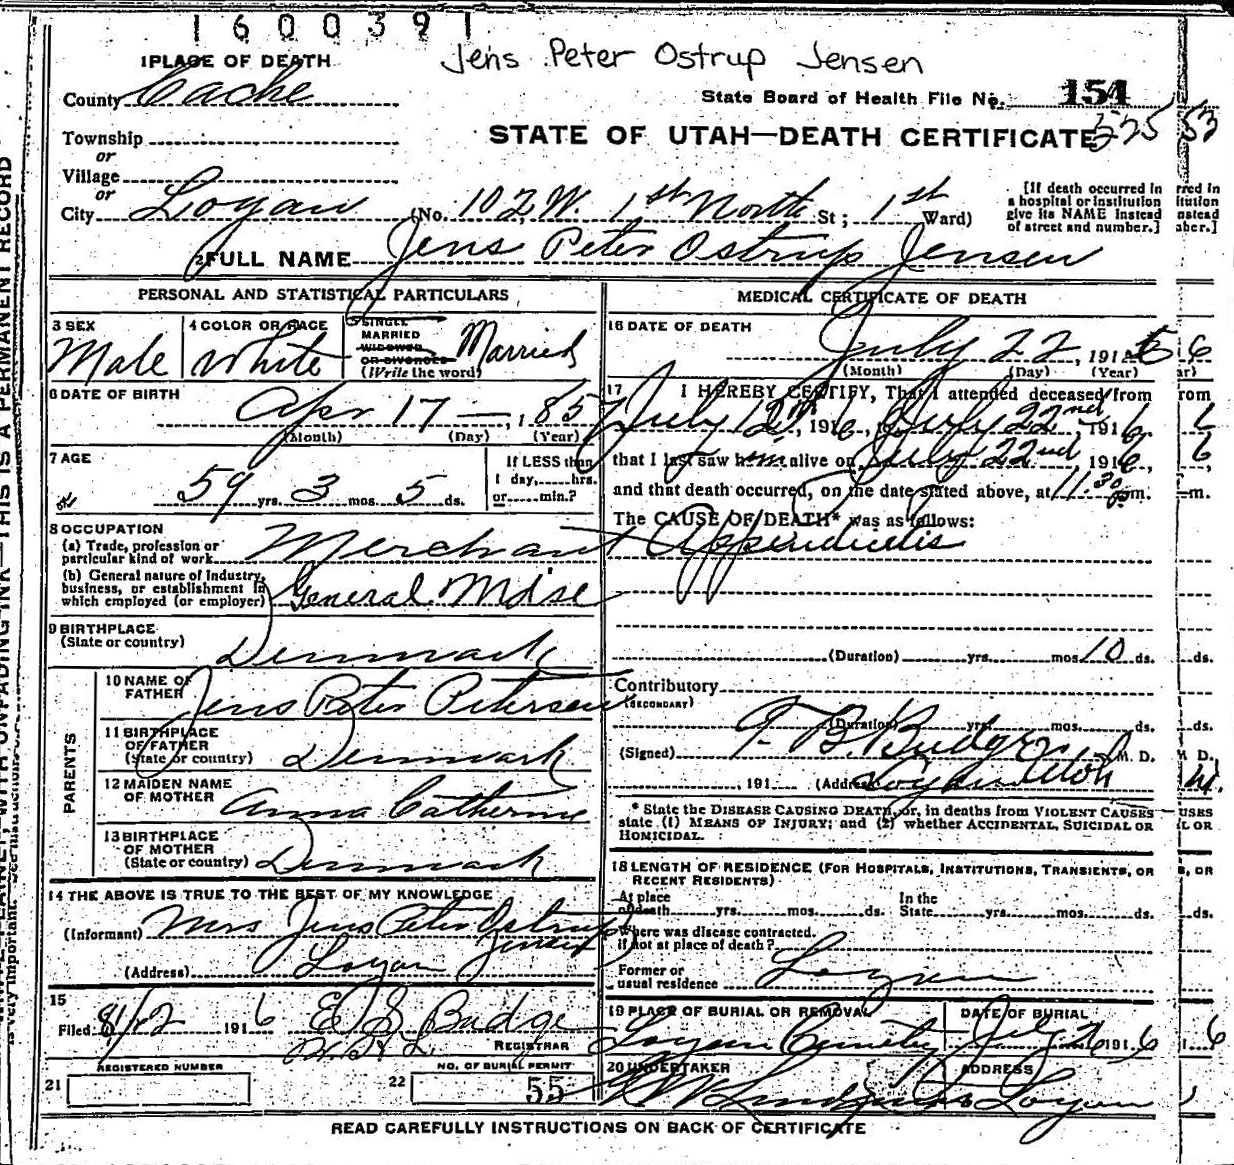 1600391
Jens Peter Ostrup Jensen
1 PLACE OF DEATH
County Cache
State Board of Health File No. 154
Township
or
STATE OF UTAH—DEATH CERTIFICATE 225 53
Village
or
City Logan (No. 102 W. 1st North St; 1st Ward)
[If death occurred in
a hospital or institution
give its NAME instead
of street and number.]
2 FULL NAME Jens Peter Ostrup Jensen
PERSONAL AND STATISTICAL PARTICULARS
3 SEX
Male
4 COLOR OR RACE
White
5 SINGLE
MARRIED
WIDOWED
OR DIVORCED
(Write the word)
Married
6 DATE OF BIRTH
Apr 17 —, 1857
(Month) (Day) (Year)
7 AGE
59 yrs. 3 mos. 5 ds.
If LESS than
1 day, hrs.
or min.?
8 OCCUPATION
(a) Trade, profession or
particular kind of work Merchant
(b) General nature of Industry,
business, or establishment in
which employed (or employer) General Mdise
9 BIRTHPLACE
(State or country)
Denmark
PARENTS
10 NAME OF
FATHER
Jens Peter Petersen
11 BIRTHPLACE
OF FATHER
(State or country) Denmark
12 MAIDEN NAME
OF MOTHER Anna Catherine
13 BIRTHPLACE
OF MOTHER
(State or country) Denmark
14 THE ABOVE IS TRUE TO THE BEST OF MY KNOWLEDGE
(Informant) Mrs Jens Peter Ostrup
Jensen
(Address) Logan
15
Filed 8/22 1916 E S Budge
REGISTRAR
REGISTERED NUMBER
21
NO. OF BURIAL PERMIT
22 55
MEDICAL CERTIFICATE OF DEATH
16 DATE OF DEATH
July 22, 191 6
(Month) (Day) (Year)
17 I HEREBY CERTIFY, That I attended deceased from
July 12th, 1916, July 22nd, 1916
that I last saw him alive on July 22nd, 1916,
and that death occurred, on the date stated above, at 11.30 pm.
The CAUSE OF DEATH* was as follows:
Appendicitis
(Duration) yrs. mos. 10 ds.
Contributory
(SECONDARY)
(Duration) yrs. mos. ds.
(Signed) T. B. Budge, M. D.
, 191 (Address) Logan Utah
* State the DISEASE CAUSING DEATH, or, in deaths from VIOLENT CAUSES
state (1) MEANS OF INJURY; and (2) whether ACCIDENTAL, SUICIDAL OR
HOMICIDAL.
18 LENGTH OF RESIDENCE (FOR HOSPITALS, INSTITUTIONS, TRANSIENTS, OR
RECENT RESIDENTS)
At place
of death yrs. mos. ds.
In the
State yrs. mos. ds.
Where was disease contracted,
if not at place of death?
Former or
usual residence Logan
19 PLACE OF BURIAL OR REMOVAL
Logan Cemetery
DATE OF BURIAL
July 26 1916
20 UNDERTAKER
ADDRESS
Logan
READ CAREFULLY INSTRUCTIONS ON BACK OF CERTIFICATE